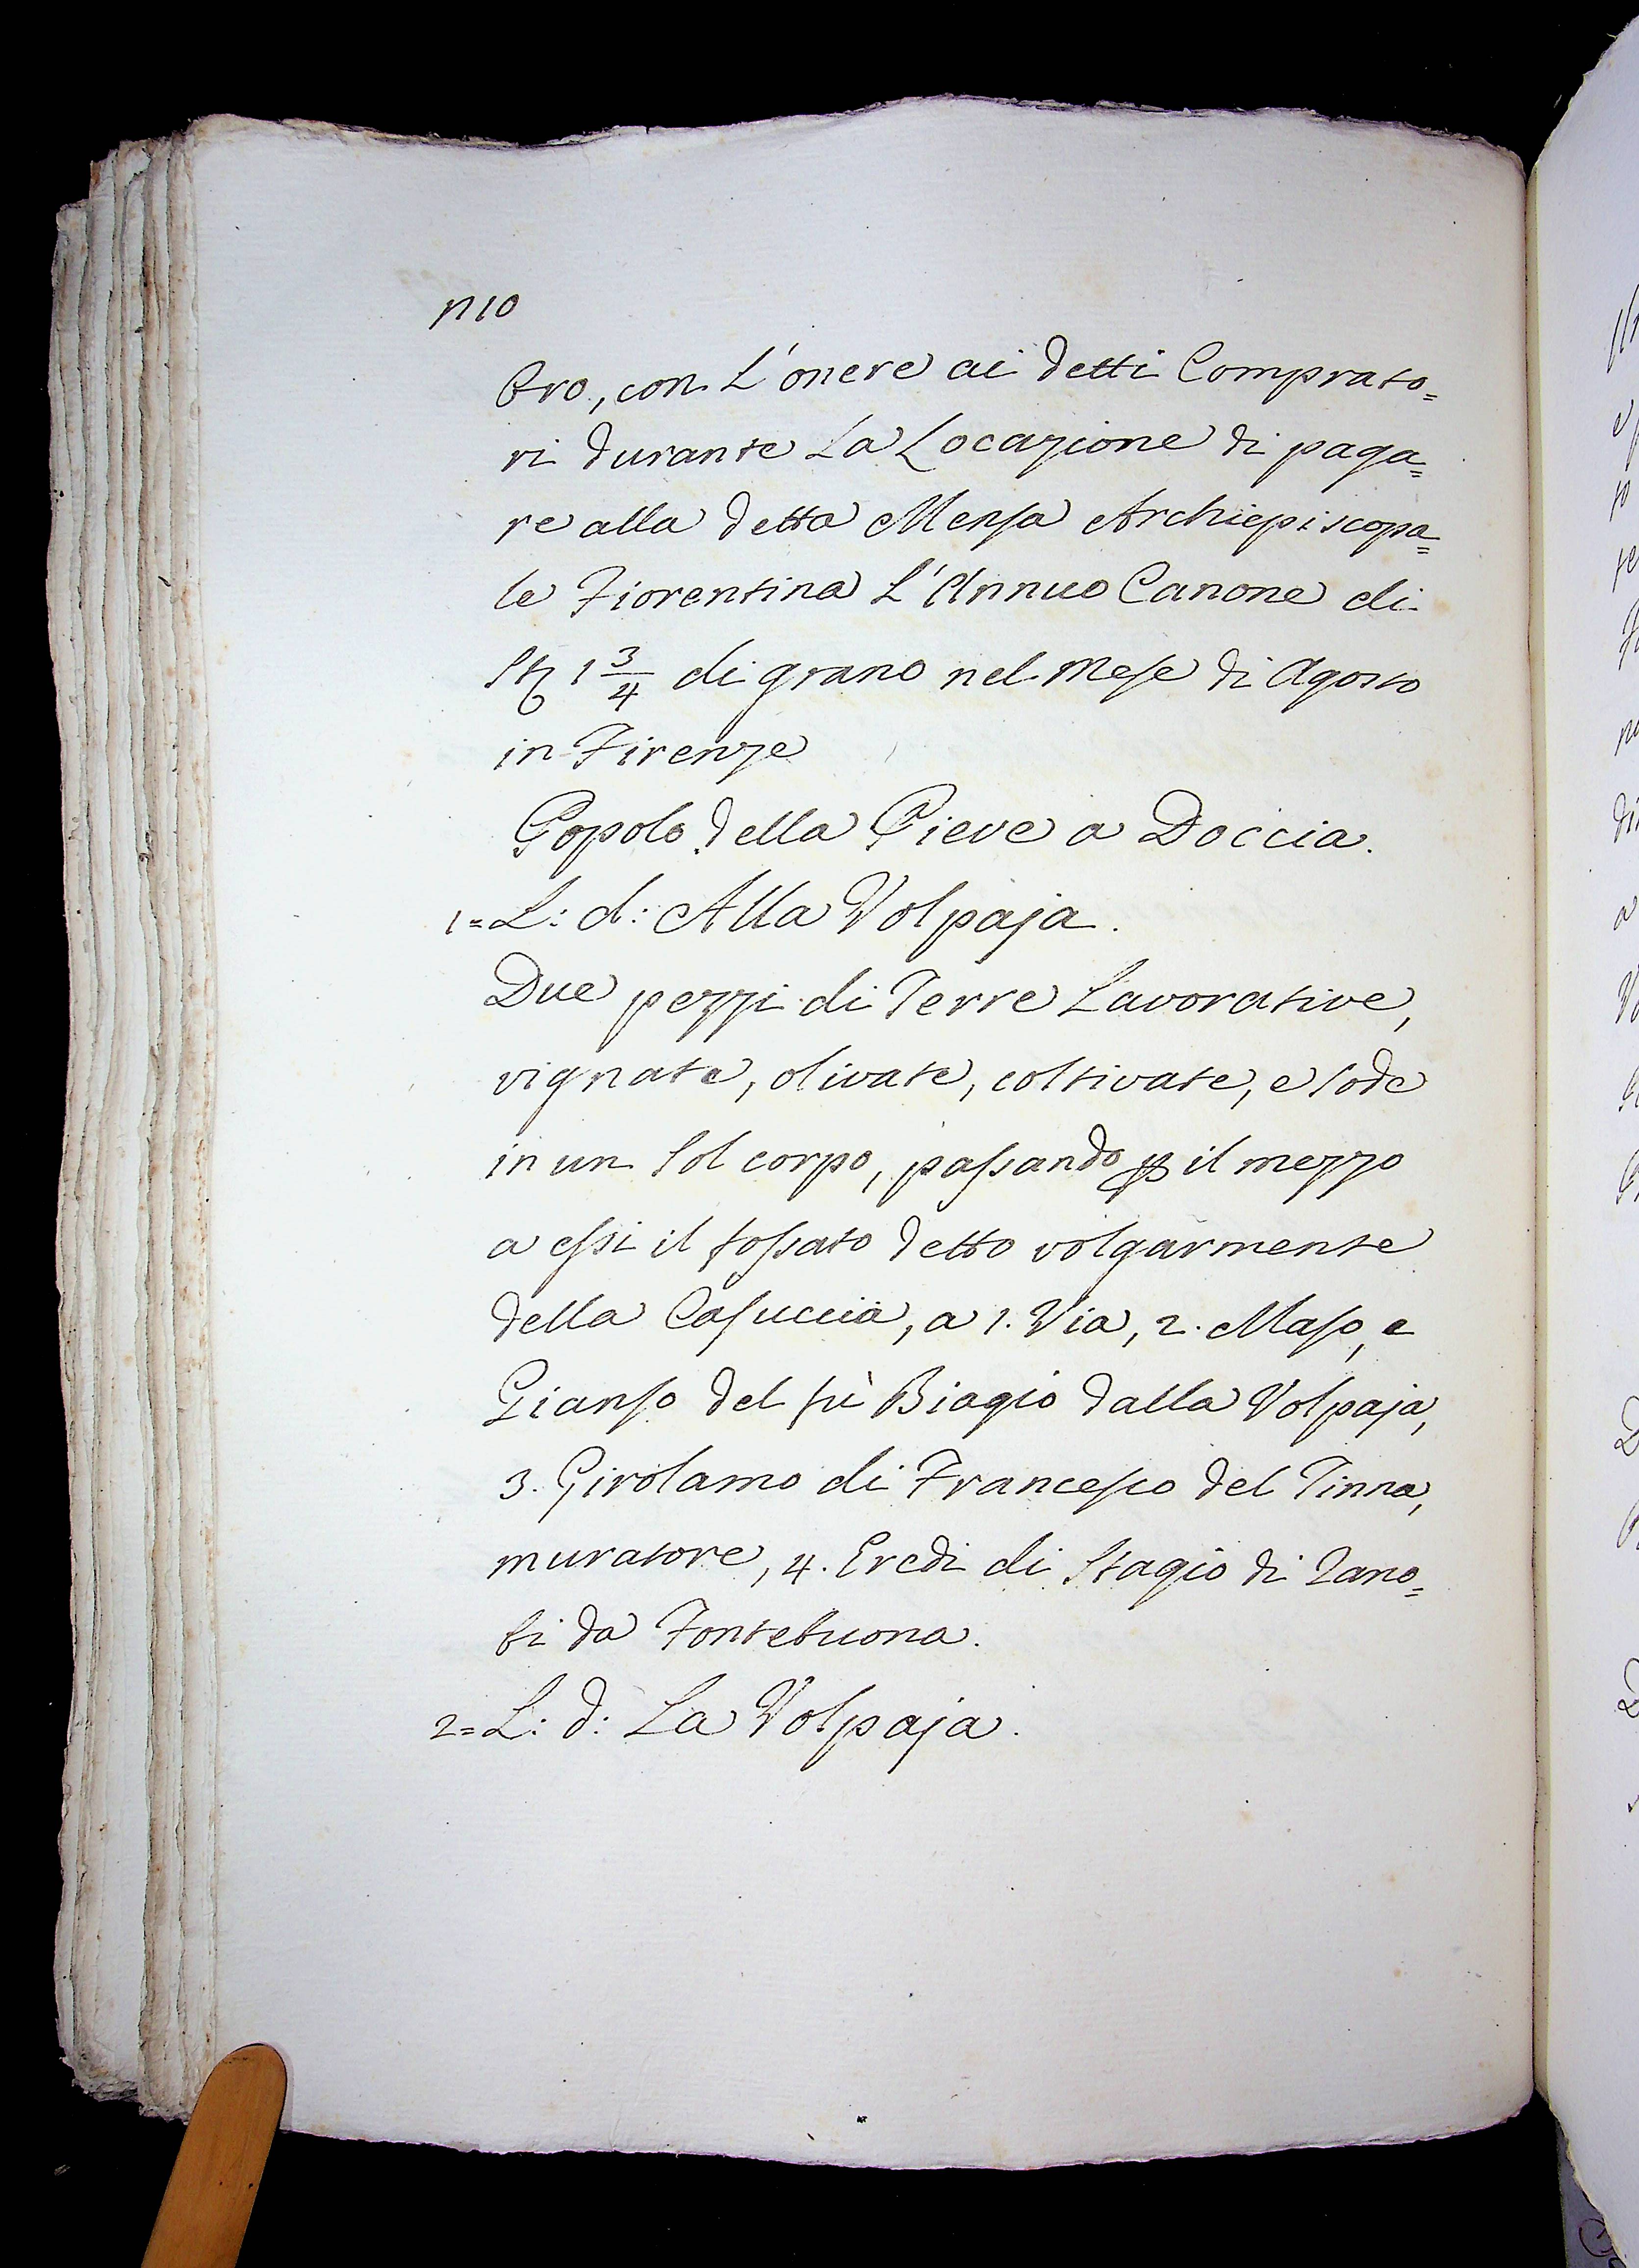 1710
Oro, con L'onere ai detti Comprato=
ri durante La Locazione di paga=
re alla detta Mensa Archiepiscopa=
le Fiorentina L'Annuo Canone di
1 3/4 di grano nel Mese di Agosto
in Firenze
Popolo della Pieve a Doccia.
1= L: d: Alla Volpaja.
Due pezzi di Terre Lavorative,
vignate, olivate, coltivate, e sode
in un sol corpo, passando p il mezzo
a essi il fossato detto volgarmente
della Casuccia, a 1. Via, 2. Maso, e
Gianso del fù Biagio dalla Volpaja,
3. Girolamo di Francesco del Tinna,
muratore, 4. Eredi di Stagio di Zano=
bi da Fontebuona.
2= L: d: La Volpaja.